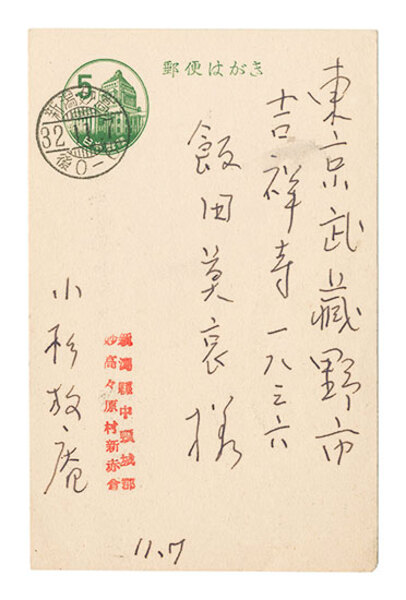 郵便はがき
5
新潟妙高
32
後0-
東京武蔵野市
吉祥寺一八三六
飯田莫哀様
新潟縣中頸城郡
妙高々原村新赤倉
小杉放庵
11.7